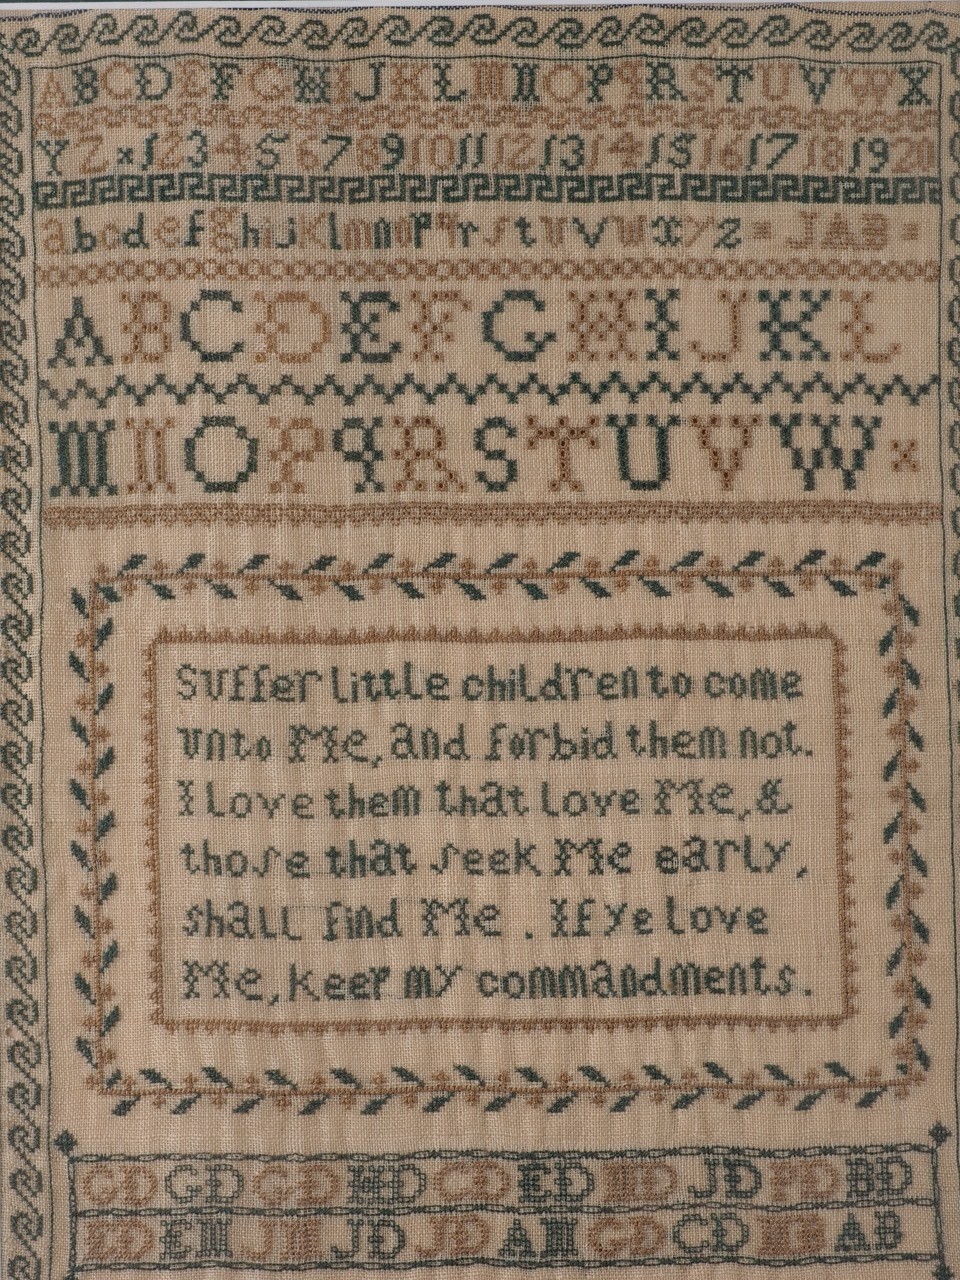 A B C D E F G H I J K L M N O P Q R S T U V W X
Y Z × 1 2 3 4 5 6 7 8 9 10 11 12 13 14 15 16 17 18 19 20
a b c d e f g h i j k l m n o p q r s t u v w x y z JAB
A B C D E F G H I J K L
M N O P Q R S T U V W ×
Suffer little children to come
unto Me, and forbid them not.
I Love them that Love Me, &
those that seek Me early,
shall find Me . If ye love
Me, keep my commandments.
GD GD GD HD CD ED JD BD
EM JD JD AM GD CD AB